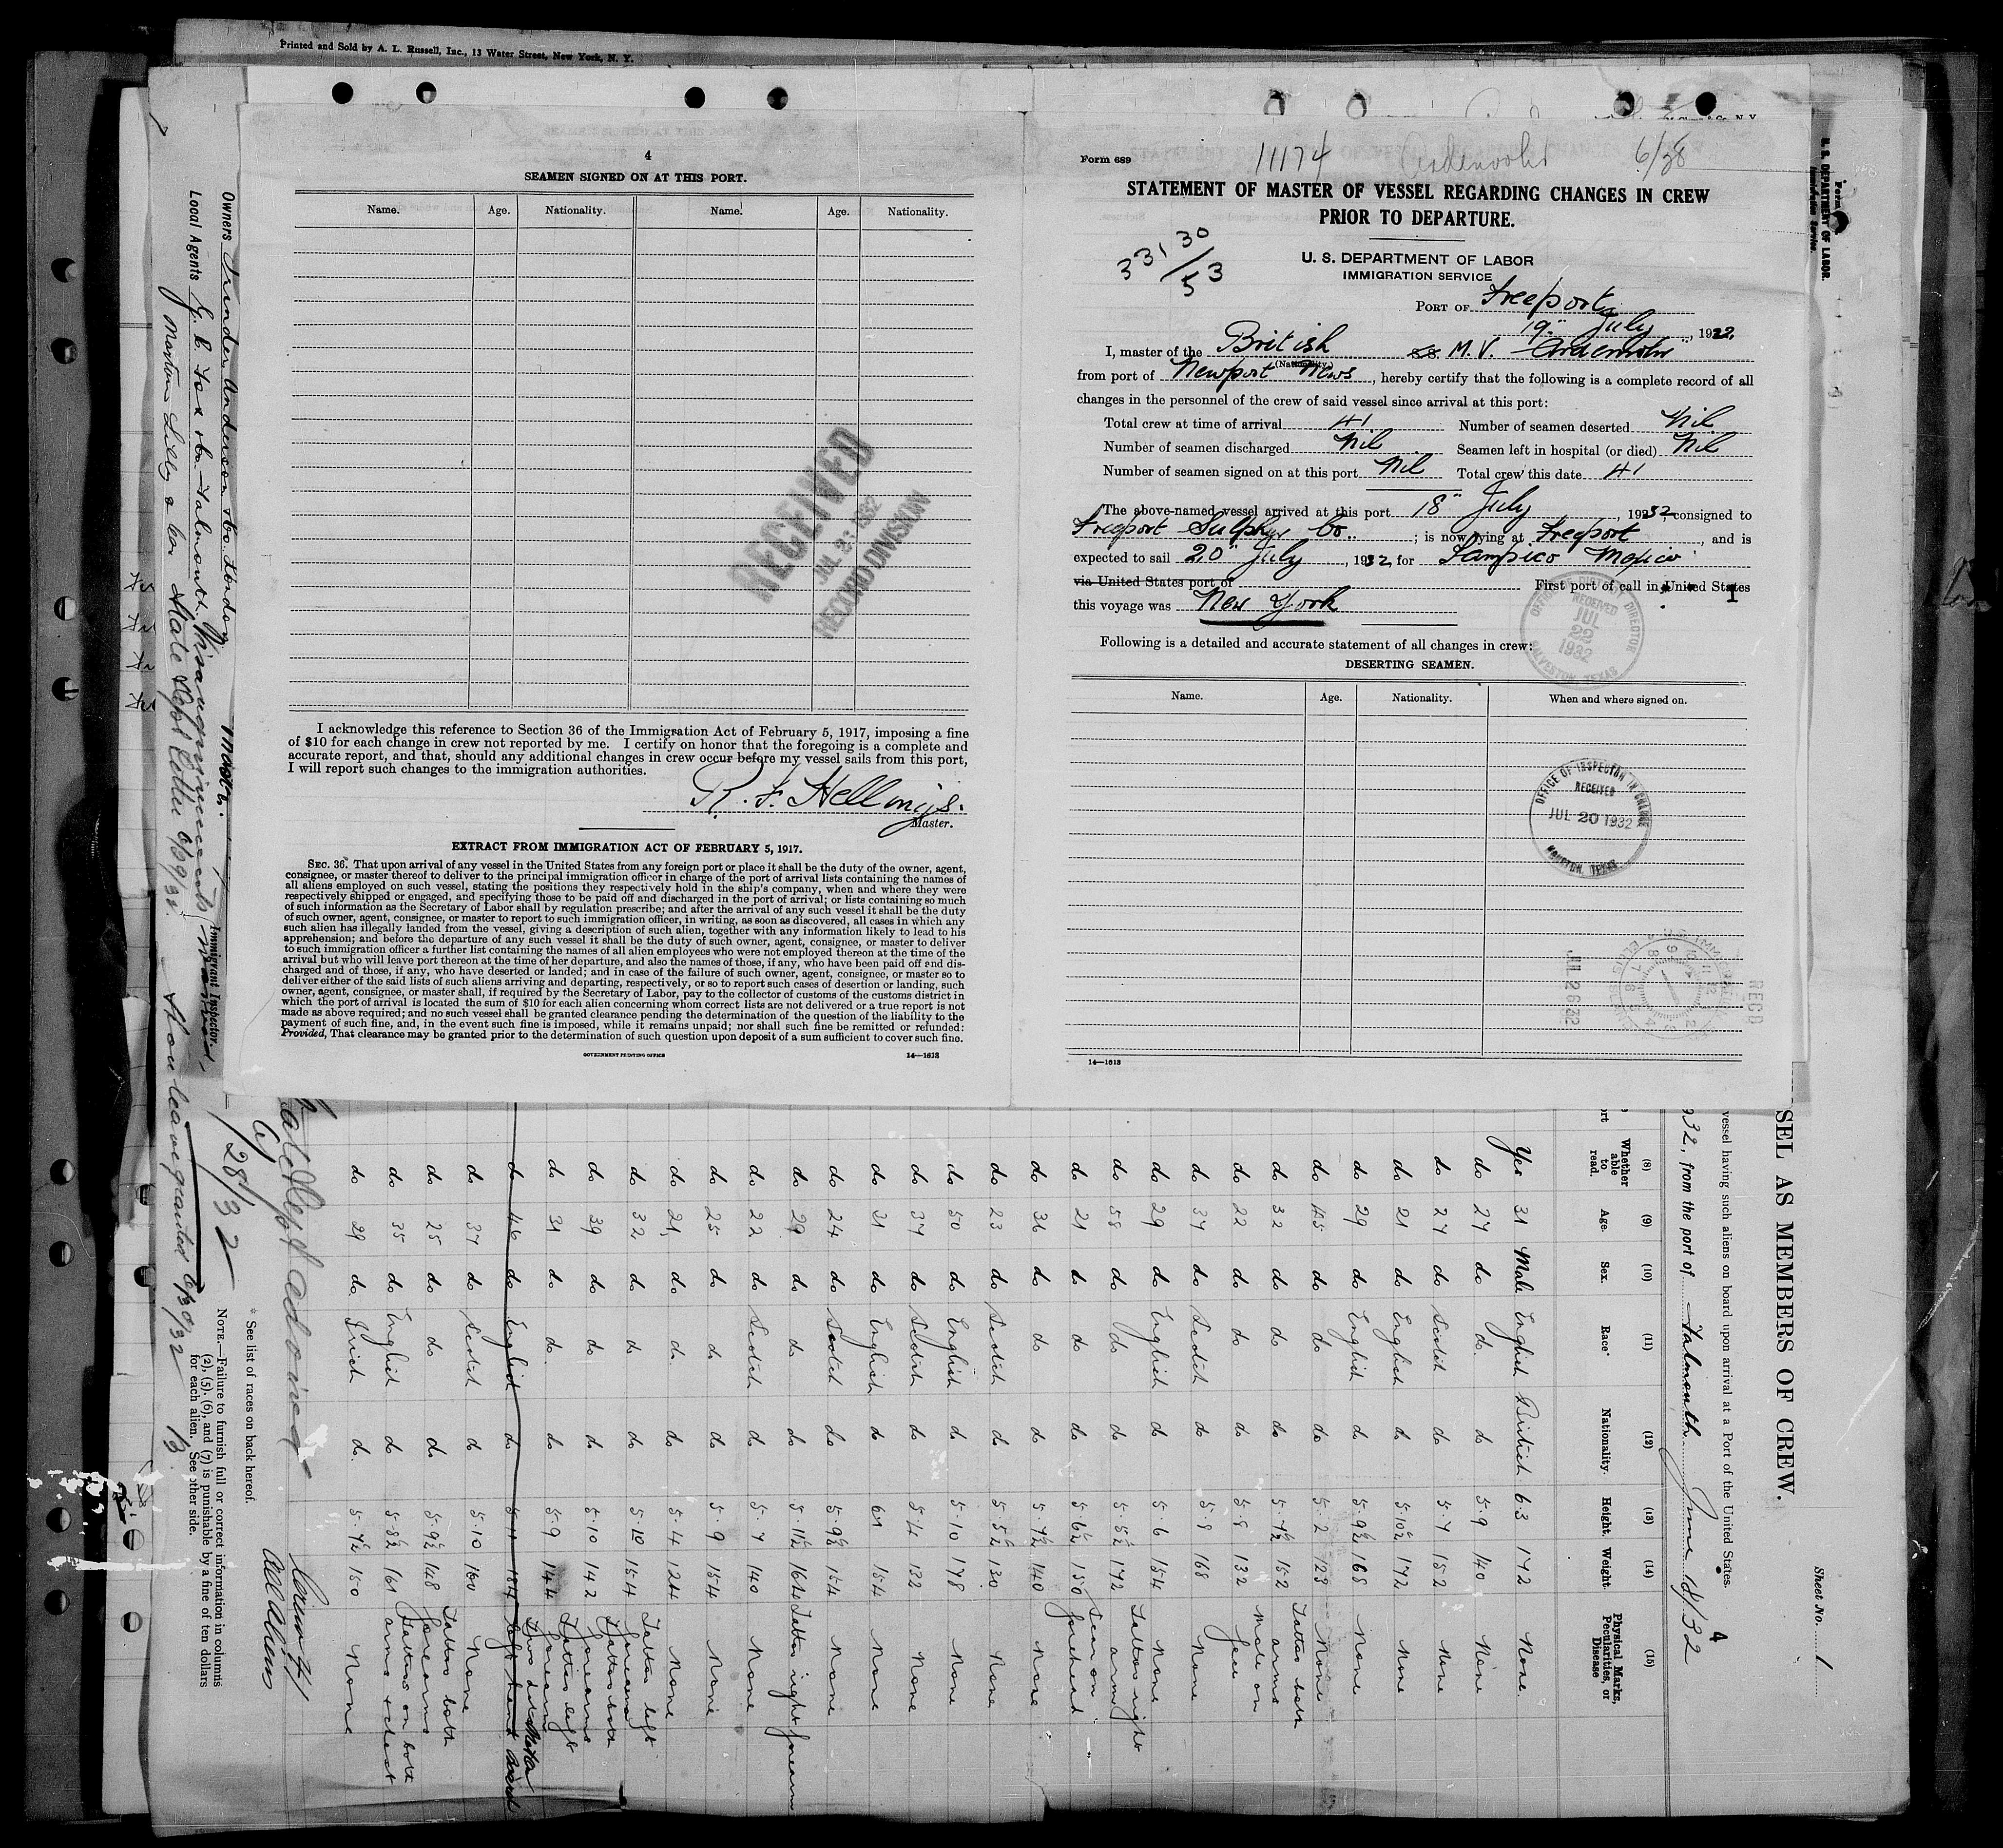 Printed and Sold by A. L. Russell, Inc., 13 Water Street, New York, N. Y.
4
SEAMEN SIGNED ON AT THIS PORT.
Name. Age. Nationality. Name. Age. Nationality.
RECEIVED
JUL 2 1932
RECORD DIVISION
I acknowledge this reference to Section 36 of the Immigration Act of February 5, 1917, imposing a fine
of $10 for each change in crew not reported by me. I certify on honor that the foregoing is a complete and
accurate report, and that, should any additional changes in crew occur before my vessel sails from this port,
I will report such changes to the immigration authorities.
R. F. Hellings.
Master.
EXTRACT FROM IMMIGRATION ACT OF FEBRUARY 5, 1917.
SEC. 36. That upon arrival of any vessel in the United States from any foreign port or place it shall be the duty of the owner, agent,
consignee, or master thereof to deliver to the principal immigration officer in charge of the port of arrival lists containing the names of
all aliens employed on such vessel, stating the positions they respectively hold in the ship's company, when and where they were
respectively shipped or engaged, and specifying those to be paid off and discharged in the port of arrival; or lists containing so much
of such information as the Secretary of Labor shall by regulation prescribe; and after the arrival of any such vessel it shall be the duty
of such owner, agent, consignee, or master to report to such immigration officer, in writing, as soon as discovered, all cases in which any
such alien has illegally landed from the vessel, giving a description of such alien, together with any information likely to lead to his
apprehension; and before the departure of any such vessel it shall be the duty of such owner, agent, consignee, or master to deliver
to such immigration officer a further list containing the names of all alien employees who were not employed thereon at the time of the
arrival but who will leave port thereon at the time of her departure, and also the names of those, if any, who have been paid off and dis-
charged and of those, if any, who have deserted or landed; and in case of the failure of such owner, agent, consignee, or master so to
deliver either of the said lists of such aliens arriving and departing, respectively, or so to report such cases of desertion or landing, such
owner, agent, consignee, or master shall, if required by the Secretary of Labor, pay to the collector of customs of the customs district in
which the port of arrival is located the sum of $10 for each alien concerning whom correct lists are not delivered or a true report is not
made as above required; and no such vessel shall be granted clearance pending the determination of the question of the liability to the
payment of such fine, and, in the event such fine is imposed, while it remains unpaid; nor shall such fine be remitted or refunded:
Provided, That clearance may be granted prior to the determination of such question upon deposit of a sum sufficient to cover such fine.
GOVERNMENT PRINTING OFFICE 14—1613
Form 689
11174 6/28
STATEMENT OF MASTER OF VESSEL REGARDING CHANGES IN CREW
PRIOR TO DEPARTURE.
331 30/53
U. S. DEPARTMENT OF LABOR
IMMIGRATION SERVICE
PORT OF Freeport
19" July, 1932.
I, master of the British SS M.V.
(Nationality)
from port of Newport News, hereby certify that the following is a complete record of all
changes in the personnel of the crew of said vessel since arrival at this port:
Total crew at time of arrival 41 Number of seamen deserted Nil
Number of seamen discharged Nil Seamen left in hospital (or died) Nil
Number of seamen signed on at this port Nil Total crew this date 41
The above-named vessel arrived at this port 18" July, 1932, consigned to
Freeport Sulphur Co.; is now lying at Freeport, and is
expected to sail 20" July, 1932, for Tampico Mexico
via United States port of First port of call in United States
this voyage was New York
Following is a detailed and accurate statement of all changes in crew:
DESERTING SEAMEN.
Name. Age. Nationality. When and where signed on.
OFFICE OF DISTRICT DIRECTOR
RECEIVED
JUL
22
1932
GALVESTON, TEXAS
OFFICE OF INSPECTOR IN CHARGE
RECEIVED
JUL 20 1932
HOUSTON, TEXAS
JUL 26 32
RECD
14—1613
U. S. DEPARTMENT OF LABOR
Immigration Service
Sheet No. 1
SEL AS MEMBERS OF CREW.
vessel having such aliens on board upon arrival at a Port of the United States.
932, from the port of Falmouth June 18/32
4
(8) (9) (10) (11) (12) (13) (14) (15)
Whether able to read. Age. Sex. Race* Nationality. Height. Weight. Physical Marks, Peculiarities, or Disease
Yes 31 Male English British 6.3 172 None.
do 27 do do. do 5.9 140 None
do 27 do Scotch do 5.7 152 None
do 21 do English do 5.10½ 172 None
do 29 do English do 5.9½ 168 None
do 45 do do do 5.2 123 None
do 32 do do do 5.7½ 152 Tattoo both arms
do 22 do do do 5.8 132 Mole on face
do 37 do Scotch do 5.8 168 None
do 29 do English do 5.6 154 None
do 58 do do do 5.5½ 172 Tattoo right arm
do 21 do do do 5.6½ 150 Scar on forehead
do 36 do do do 5.7½ 140 None
do 23 do Scotch do 5.5½ 130 None
do 50 do English do 5.10 178 None
do 37 do Scotch do 5.4 132 None
do 31 do English do 6.1 154 None
do 24 do Scotch do 5.9½ 154 None
do 29 do do do 5.11½ 164 Tattoo right forearm
do 22 do Scotch do 5.7 140 None
do 25 do do do 5.9 154 None
do 21 do do do 5.4 124 None
do 32 do do do 5.10 154 Tattoo left forearm
do 39 do do do 5.10 142 Tattoo both forearms
do 31 do do do 5.9 144 Tattoo left forearm
do 46 do English do 5.11 184
do 37 do Scotch do 5.10 160 None
do 25 do do do 5.9½ 148 Tattoo both forearms
do 35 do English do 5.8½ 161 Tattoo on both arms & chest
do 29 do Irish do. 5.7½ 150 None
Crew 41
All Aliens
* See list of races on back hereof.
NOTE.—Failure to furnish full or correct information in columns
(2), (5), (6), and (7) is punishable by a fine of ten dollars
for each alien. See other side.
6/28/32
Immigrant Inspector.
Master.
Owners Trinder Anderson & Co. London
Local Agents
Shore leave granted 6/30/32